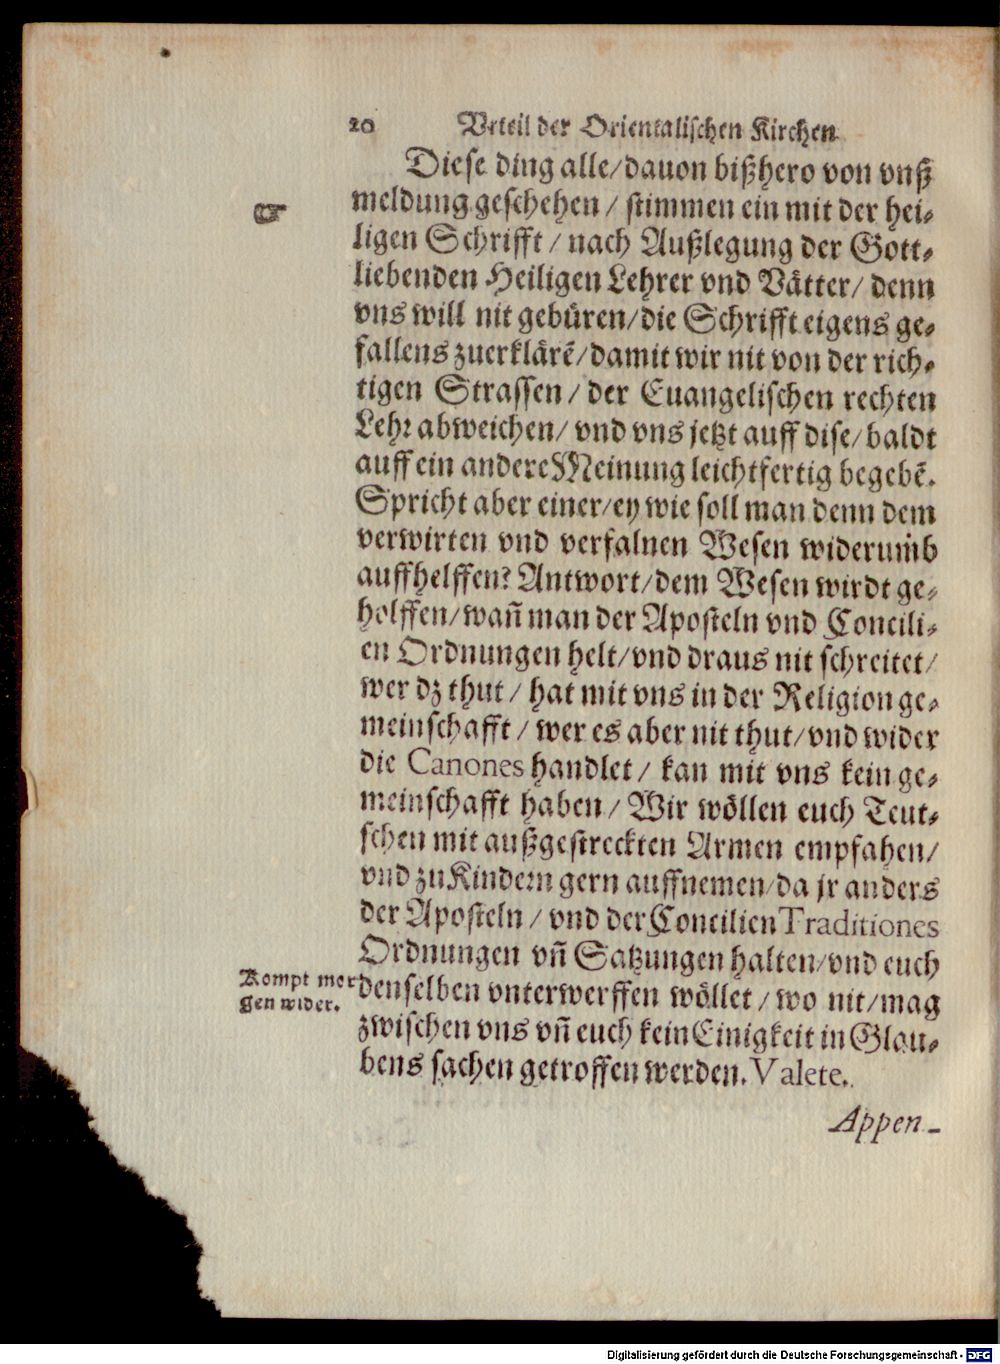 20 Vrteil der Orientalischen Kirchen
Diese ding alle/dauon bißhero von vnß
☞
meldung geschehen / stimmen ein mit der hei-
ligen Schrifft / nach Außlegung der Gott-
liebenden Heiligen Lehrer vnd Vätter/ denn
vns will nit gebüren/die Schrifft eigens ge-
fallens zuerklärē/damit wir nit von der rich-
tigen Strassen / der Euangelischen rechten
Lehr abweichen/ vnd vns jetzt auff dise/ baldt
auff ein andere Meinung leichtfertig begebē.
Spricht aber einer/ey wie soll man denn dem
verwirten vnd verfalnen Wesen widerum̃b
auffhelffen? Antwort/dem Wesen wirdt ge-
holffen/wañ man der Aposteln vnd Concili-
en Ordnungen helt/vnd draus nit schreitet/
wer dz thut / hat mit vns in der Religion ge-
meinschafft / wer es aber nit thut/vnd wider
die Canones handlet / kan mit vns kein ge-
meinschafft haben / Wir wöllen euch Teut-
schen mit außgestreckten Armen empfahen/
vnd zu Kindern gern auffnemen/da jr anders
der Aposteln / vnd der Concilien Traditiones
Ordnungen vñ Satzungen halten/vnd euch
Kompt mor
gen wider.
denselben vnterwerffen wöllet / wo nit/mag
zwischen vns vñ euch kein Einigkeit in Glau-
bens sachen getroffen werden. Valete.
Appen-
Digitalisierung gefördert durch die Deutsche Forschungsgemeinschaft - DFG